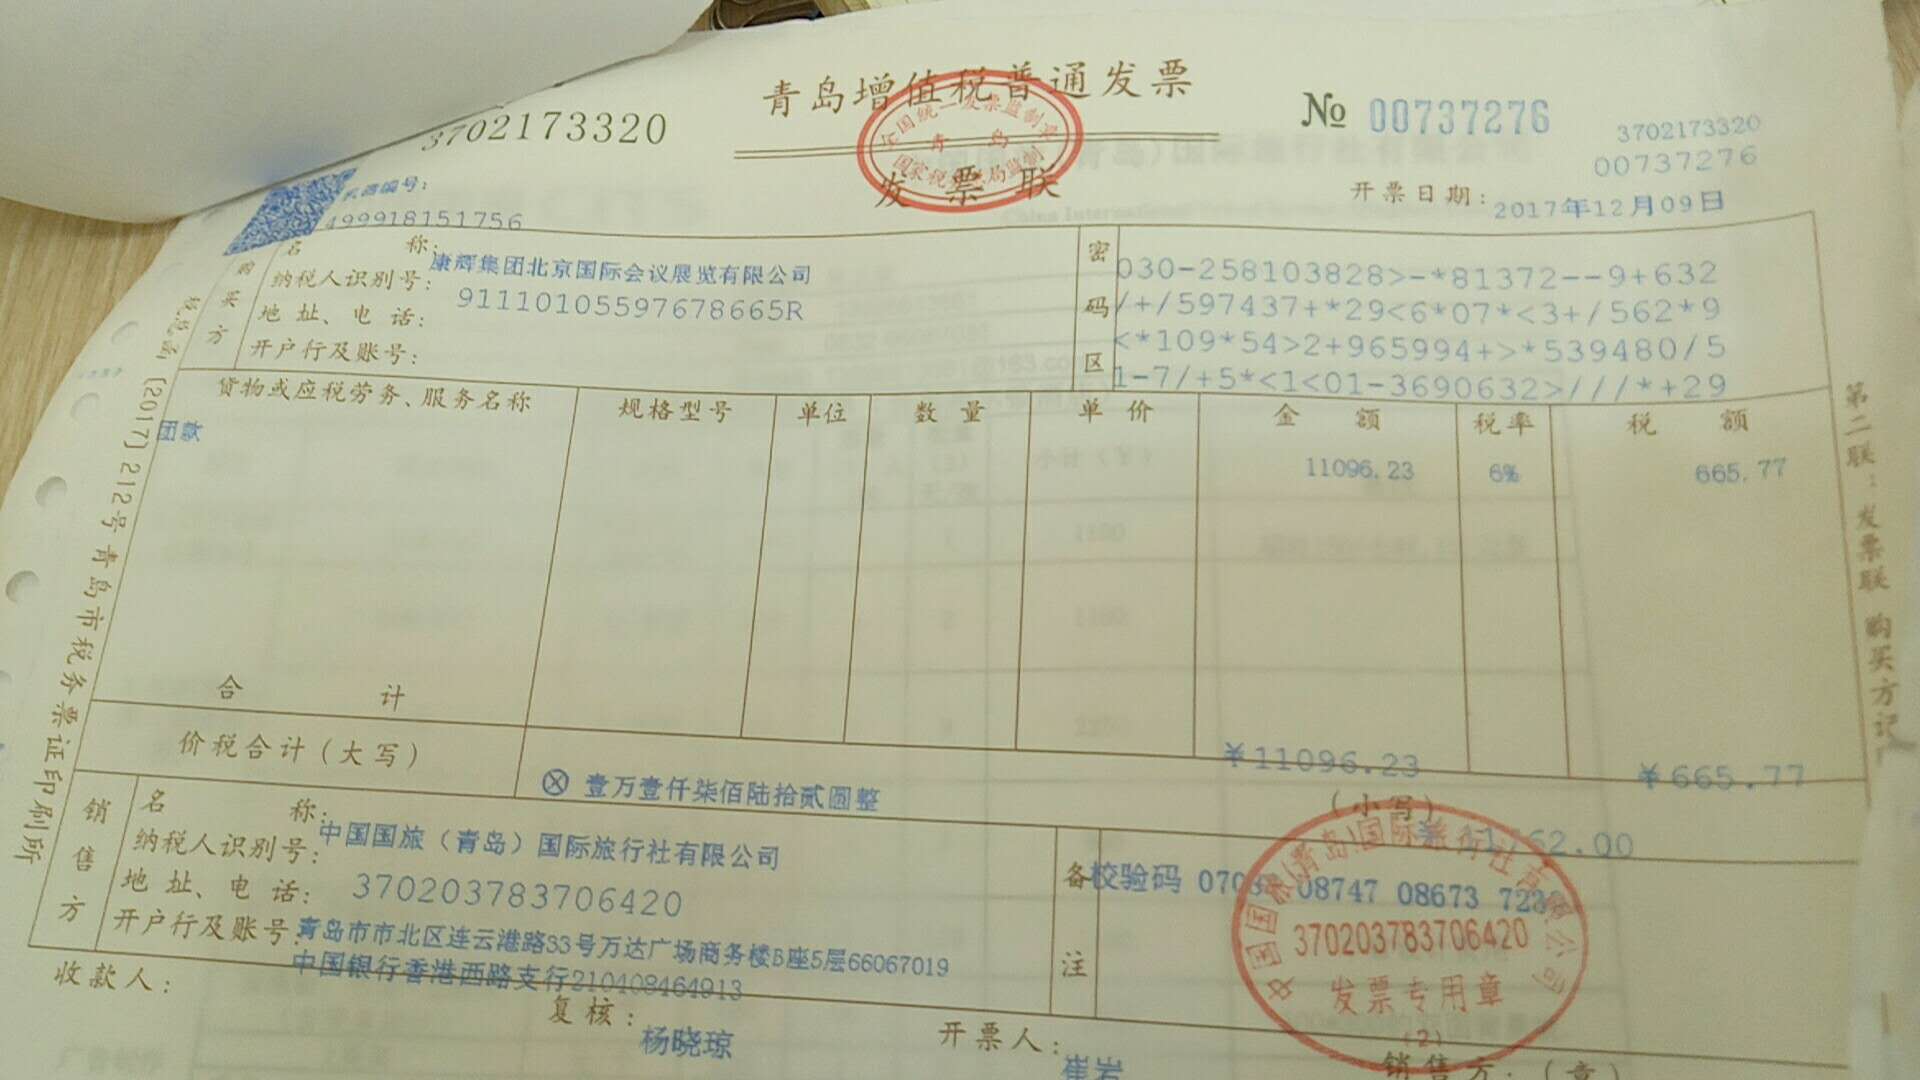 青岛增值税普通发票
3702173320
№ 00737276
3702173320
00737276
发票联
全国统一发票监制章
青岛
国家税务总局监制
开票日期: 2017年12月09日
机器编号:
499918151756
购买方
名称: 康辉集团北京国际会议展览有限公司
纳税人识别号: 91110105597678665R
地址、电话:
开户行及账号:
密码区
030-258103828>-*81372--9+632
/+/597437+*29<6*07*<3+/562*9
<*109*54>2+965994+>*539480/5
1-7/+5*<1<01-3690632>///*+29
货物或应税劳务、服务名称 规格型号 单位 数量 单价 金额 税率 税额
团款 11096.23 6% 665.77
合计 ¥11096.23 ¥665.77
价税合计(大写) ⊗ 壹万壹仟柒佰陆拾贰圆整 (小写)
销售方
名称: 中国国旅(青岛)国际旅行社有限公司
纳税人识别号: 370203783706420
地址、电话: 青岛市市北区连云港路33号万达广场商务楼B座5层66067019
开户行及账号: 中国银行香港西路支行210408464913
备注
校验码 08747 08673
中国国旅(青岛)国际旅行社有限公司
370203783706420
发票专用章
(2)
收款人:
复核: 杨晓琼
开票人: 崔岩
销售方:(章)
〔2017〕212号青岛市税务票证印刷所
第二联:发票联 购买方记